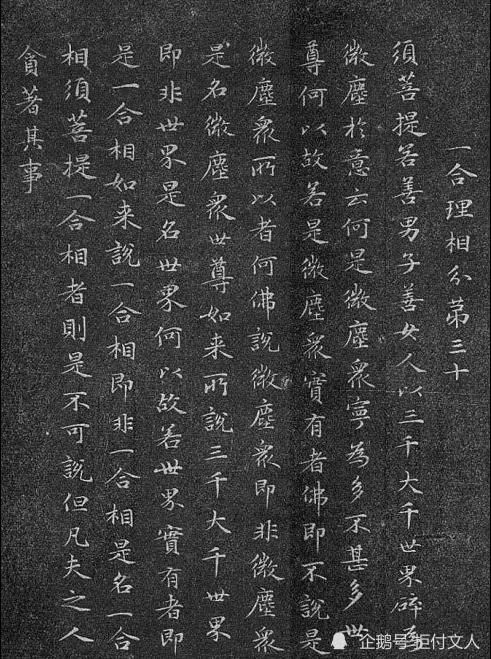 一合理相分第三十
須菩提若善男子善女人以三千大千世界碎為
微塵於意云何是微塵眾寧為多不甚多世
尊何以故若是微塵眾實有者佛即不說是
微塵眾所以者何佛說微塵眾即非微塵眾
是名微塵眾世尊如来所說三千大千世界
即非世界是名世界何以故若世界實有者即
是一合相如来說一合相即非一合相是名一合
相須菩提一合相者則是不可說但凡夫之人
貪著其事
企鹅号 拒付文人